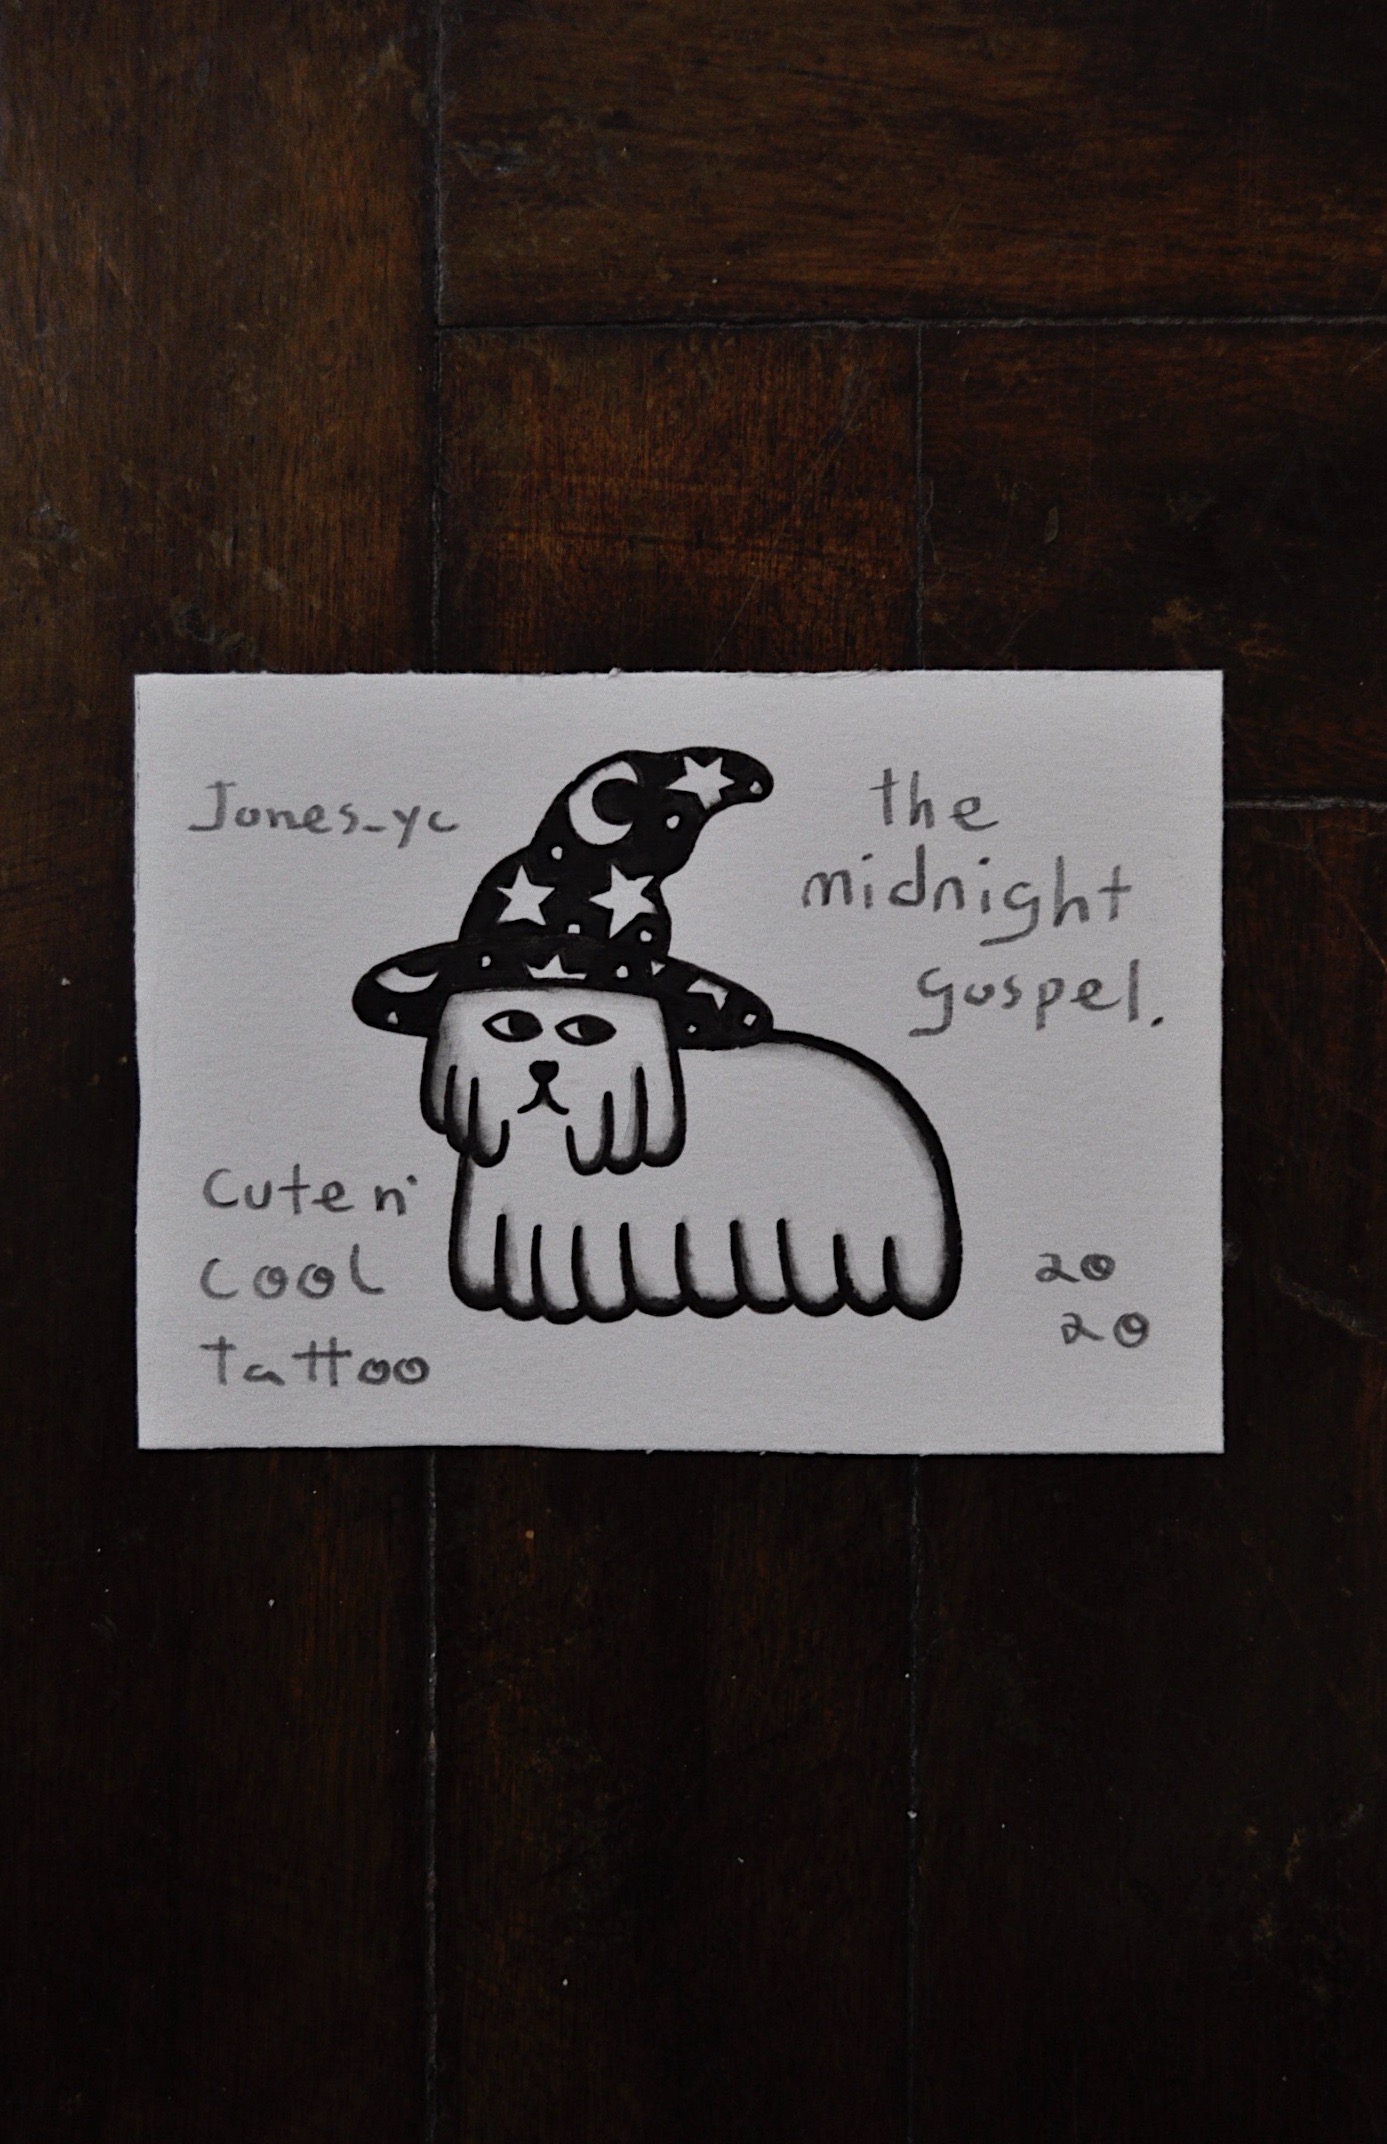 Jones_yc
the
midnight
gospel.
cute n'
cool
tattoo
20
20